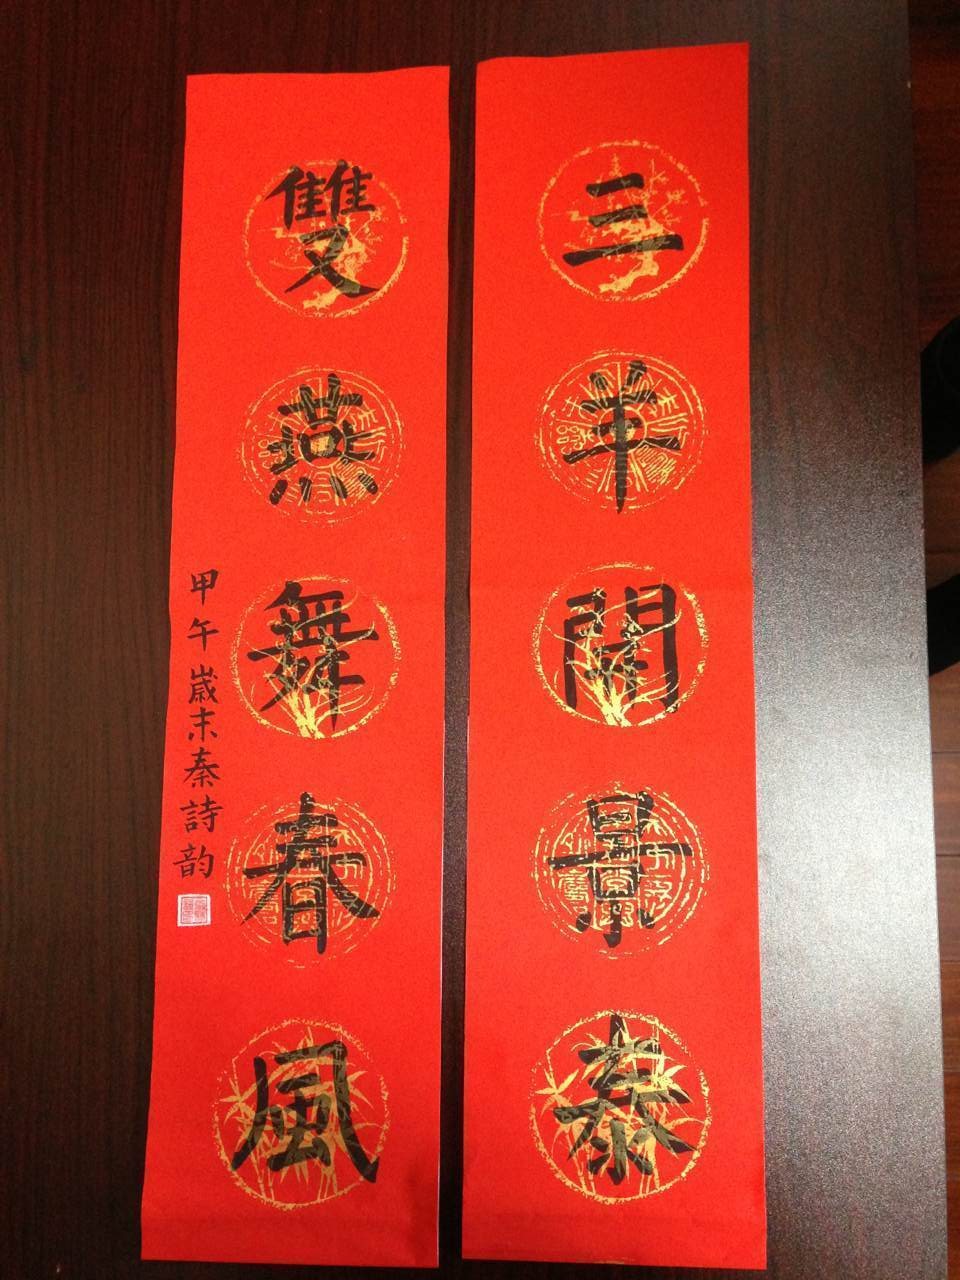 三羊開景泰
雙燕舞春風
甲午歲末秦詩韵